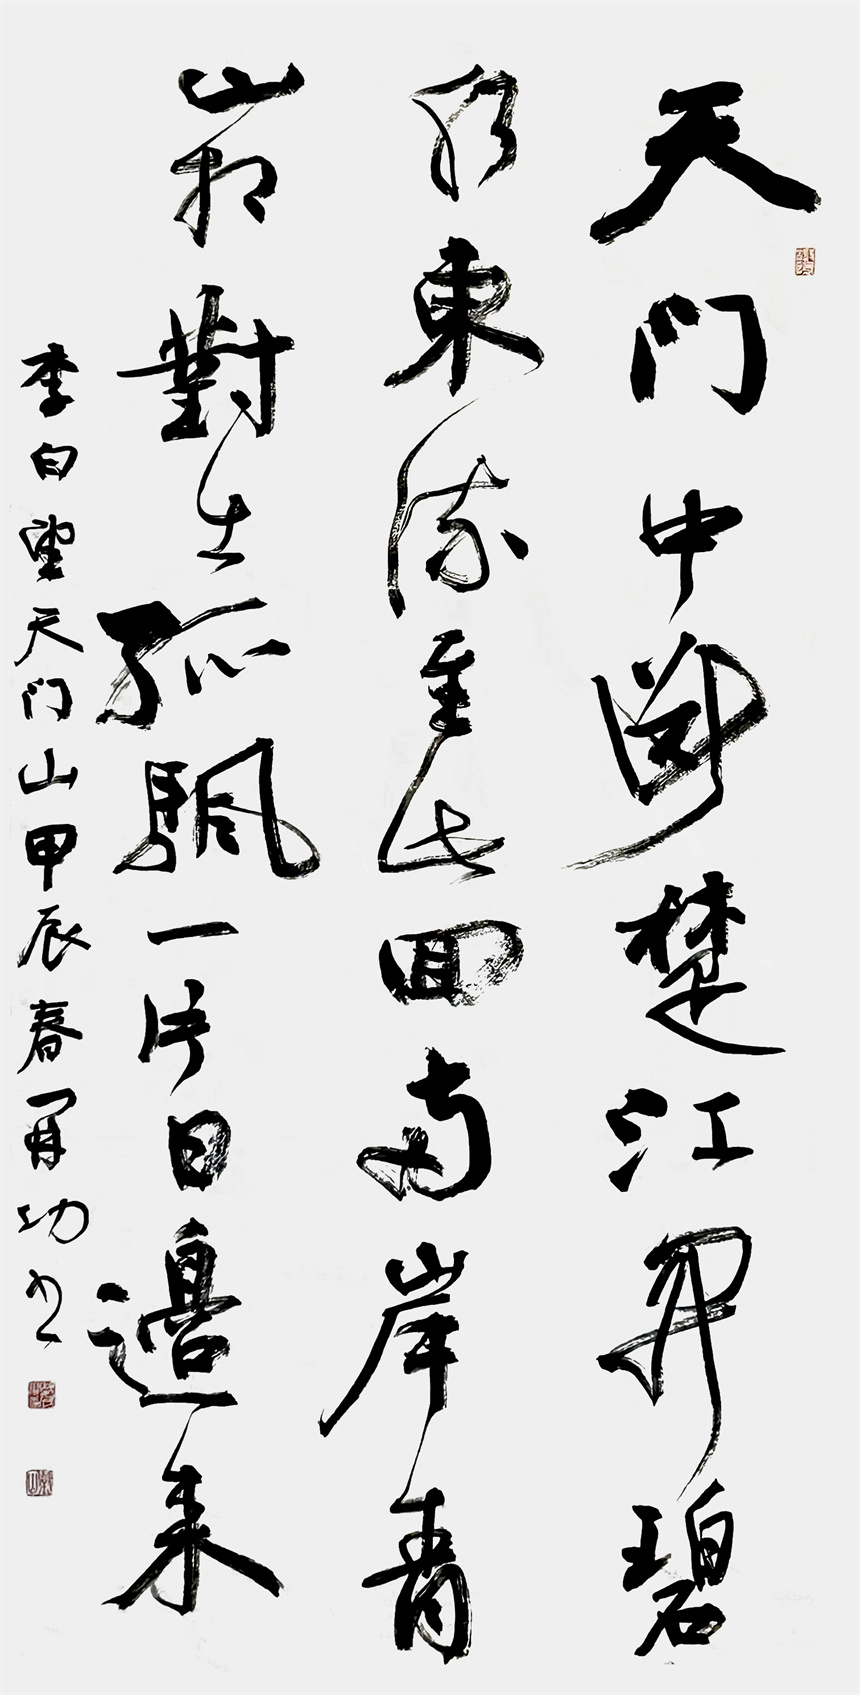 天门中斷楚江開碧
水東流至此回兩岸青
山相對出孤颿一片日邊來
李白望天门山甲辰春再功书